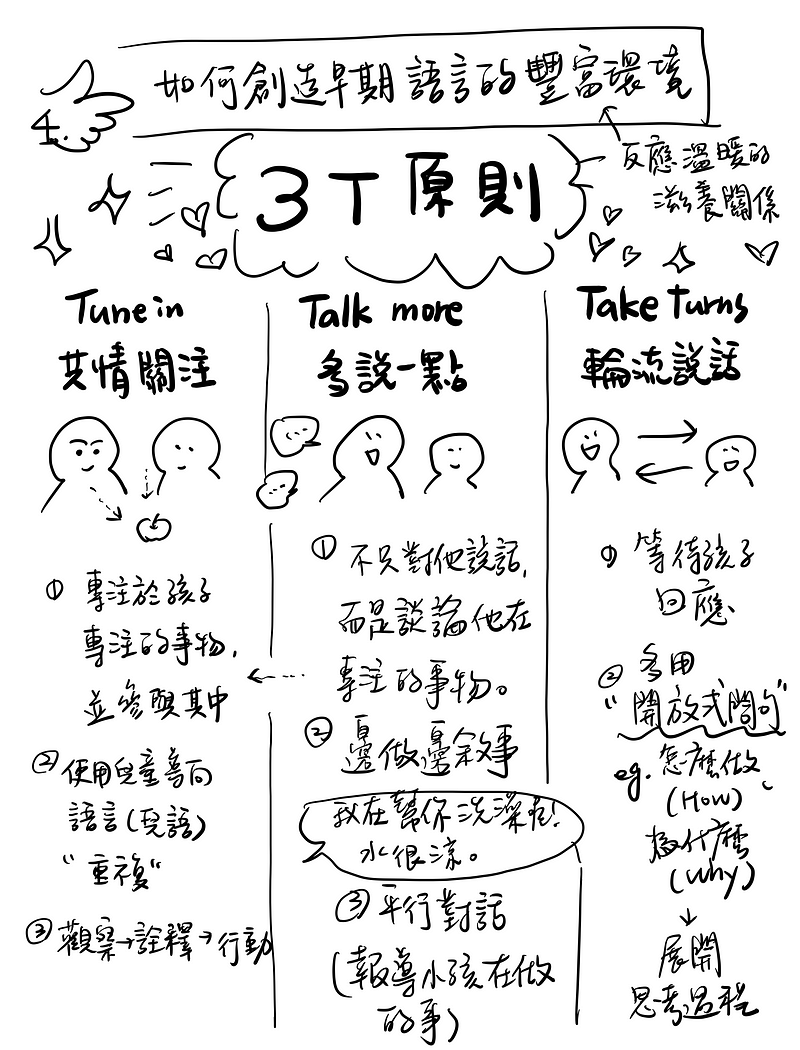 4.
如何創造早期語言的豐富環境
反應溫暖的
滋養關係
3T原則
Tune in
共情關注
① 專注於孩子
專注的事物,
並參與其中
② 使用兒童導向
語言(兒語)
"重複"
③ 觀察→詮釋→行動
Talk more
多說一點
① 不只對他說話,
而是談論他在
專注的事物。
② 邊做邊敘事
我在幫你洗澡啦!
水很涼。
③ 平行對話
(報導小孩在做
的事)
Take turns
輪流說話
① 等待孩子
回應
② 多用
"開放式問句"
eg. 怎麼做、
(How)
為什麼
(Why)
↓
展開
思考過程